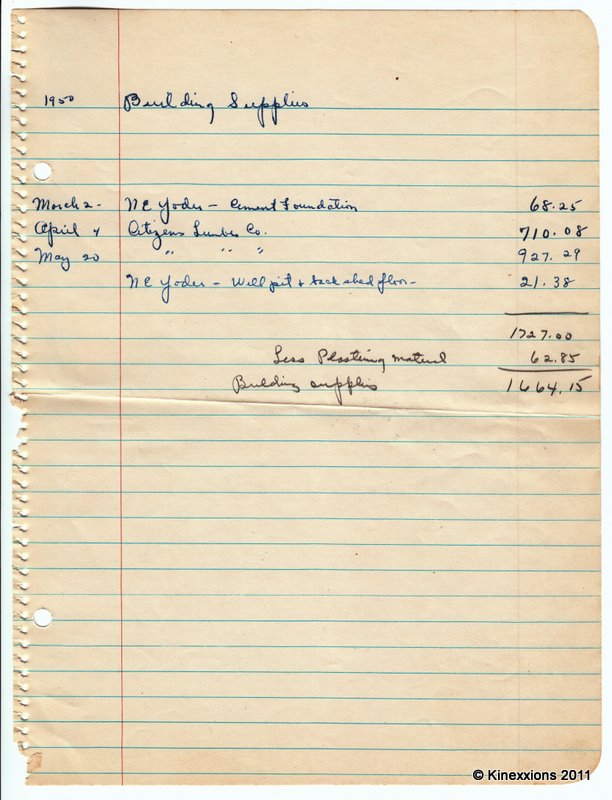 1950 Building Supplies
March 2 - N E Yoder - Cement Foundation 68.25
April 4 Citizens Lumber Co. 710.08
May 20 " " " 927.29
N E Yoder - Well pit & back shed floor - 21.38
1727.00
Less Plastering material 62.85
Building supplies 1664.15
© Kinexxions 2011